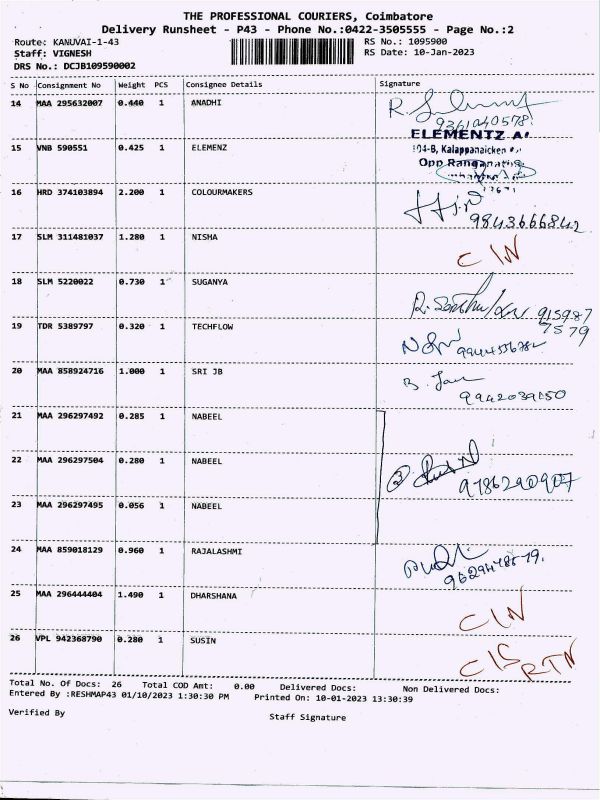 THE PROFESSIONAL COURIERS, Coimbatore
Delivery Runsheet - P43 - Phone No.:0422-3505555 - Page No.:2
Route: KANUVAI-1-43 RS No.: 1095900
Staff: VIGNESH RS Date: 10-Jan-2023
DRS No.: DCJB109590002
S No Consignment No Weight PCS Consignee Details Signature
14 MAA 295632007 0.440 1 ANADHI
9361040578
15 VNB 590551 0.425 1 ELEMENZ
ELEMENTZ
104-B, Kalappanaicken
Opp
16 HRD 374103894 2.200 1 COLOURMAKERS
9843666842
17 SLM 311481037 1.280 1 NISHA C/N
18 SLM 5220022 0.730 1 SUGANYA
915987
7579
19 TDR 5389797 0.320 1 TECHFLOW
20 MAA 858924716 1.000 1 SRI JB
9942039150
21 MAA 296297492 0.285 1 NABEEL
22 MAA 296297504 0.280 1 NABEEL
9786290907
23 MAA 296297495 0.056 1 NABEEL
24 MAA 859018129 0.960 1 RAJALASHMI
25 MAA 296444404 1.490 1 DHARSHANA C/N
26 VPL 942368790 0.280 1 SUSIN C/S RTN
Total No. Of Docs: 26 Total COD Amt: 0.00 Delivered Docs: Non Delivered Docs:
Entered By :RESHMAP43 01/10/2023 1:30:30 PM Printed On: 10-01-2023 13:30:39
Verified By Staff Signature